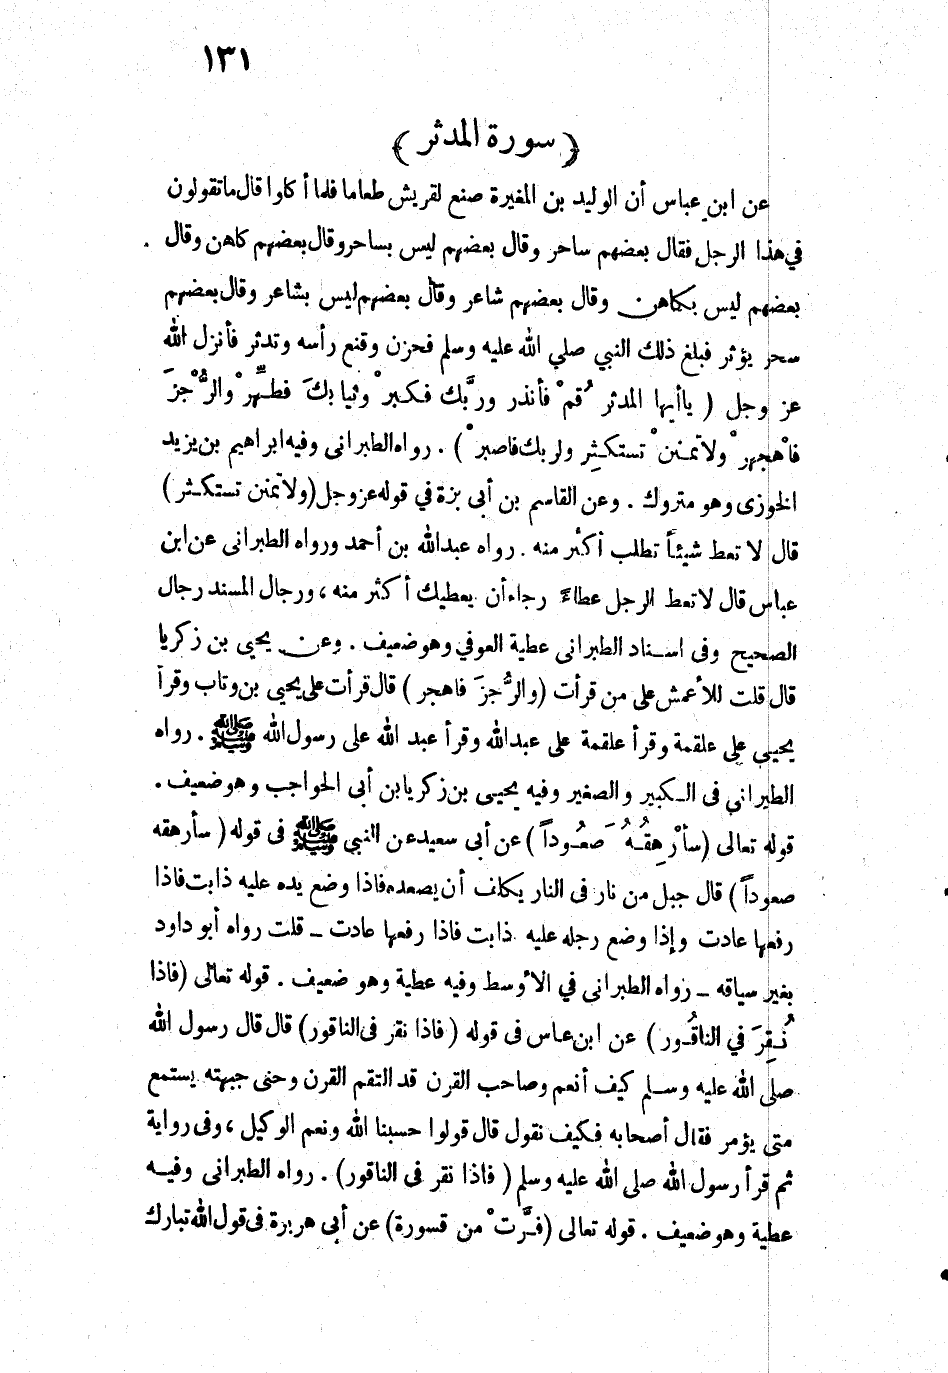 ١٣١
﴿ سورة المدثر ﴾
عن ابن عباس أن الوليد بن المغيرة صنع لقريش طعاما فلما أكلوا قال ما تقولون
في هذا الرجل فقال بعضهم ساحر وقال بعضهم ليس بساحر وقال بعضهم كاهن وقال
بعضهم ليس بكاهن وقال بعضهم شاعر وقال بعضهم ليس بشاعر وقال بعضهم
سحر يؤثر فبلغ ذلك النبي صلي الله عليه وسلم فحزن وقنع رأسه وتدثر فأنزل الله
عز وجل ( ياأيها المدثر قُمْ فأنذر وربَّك فكبرْ وثيابكَ فطهِّرْ والرُّجْزَ
فاْهجرْ ولا تمننْ تستكثِر ولربك فاصبرْ ) . رواه الطبرانى وفيه ابراهيم بن يزيد
الخوزى وهو متروك . وعن القاسم بن أبى بزة في قوله عز وجل (ولا تمنن تستكثر )
قال لا تعط شيئاً تطلب أكثر منه . رواه عبدالله بن أحمد ورواه الطبرانى عن ابن
عباس قال لا تعط الرجل عطاءً رجاء أن يعطيك أكثر منه ، ورجال المسند رجال
الصحيح وفى اسناد الطبرانى عطية العوفي وهو ضعيف . وعن يحيى بن زكريا
قال قلت للأعمش على من قرأت (والرُّجزَ فاهجر ) قال قرأت على يحيى بن وثاب وقرأ
يحيى على علقمة وقرأ علقمة على عبدالله وقرأ عبد الله على رسول الله ﷺ . رواه
الطبراني فى الكبير والصغير وفيه يحيى بن زكريا بن أبى الحواجب وهو ضعيف .
قوله تعالى (سأرْهِقُهُ صَعُوداً ) عن أبى سعيد عن النبي ﷺ فى قوله ( سأرهقه
صعوداً ) قال جبل من نار فى النار يكلف أن يصعده فاذا وضع يده عليه ذابت فاذا
رفعها عادت وإذا وضع رجله عليه ذابت فاذا رفعها عادت ـ قلت رواه أبو داود
بغير سياقه ـ رواه الطبرانى في الأوسط وفيه عطية وهو ضعيف . قوله تعالى (فاذا
نُقِرَ في الناقُور ) عن ابن عباس فى قوله ( فاذا نقر فى الناقور) قال قال رسول الله
صلى الله عليه وسلم كيف أنعم وصاحب القرن قد التقم القرن وحنى جبهته يستمع
متى يؤمر فقال أصحابه فكيف نقول قال قولوا حسبنا الله ونعم الوكيل ، وفى رواية
ثم قرأ رسول الله صلى الله عليه وسلم ( فاذا نقر فى الناقور) . رواه الطبرانى وفيه
عطية وهو ضعيف . قوله تعالى (فرَّتْ من قسورة) عن أبى هريرة فى قول الله تبارك